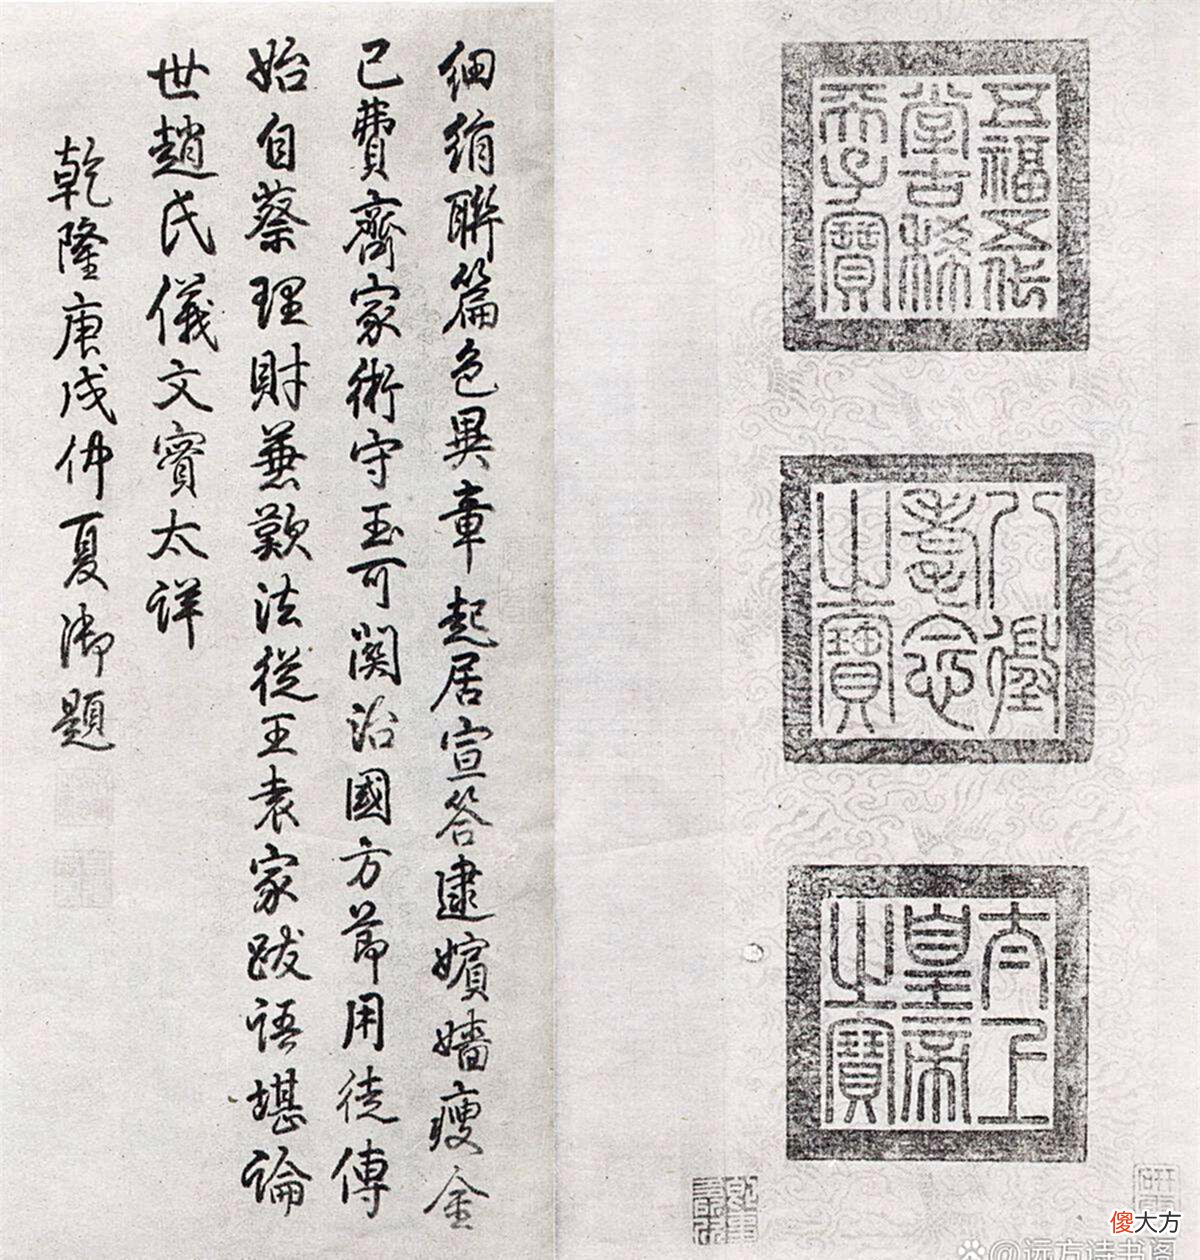 五福五代
堂古稀
天子寶
八徵
耄念
之寶
太上
皇帝
之寶
細絹聯篇色異章起居宣答逮嬪嬙瘦金
已費齊家術守玉可関治國方節用徒傳
始自蔡理財兼歎法從王袁家跋語堪論
世趙氏儀文實太詳
乾隆庚戌仲夏御題
傻大方
@远方诗书阁